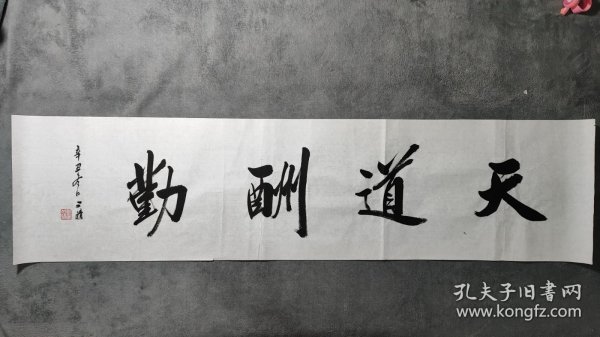 天道酬勤
辛丑
孔夫子旧书网
www.kongfz.com